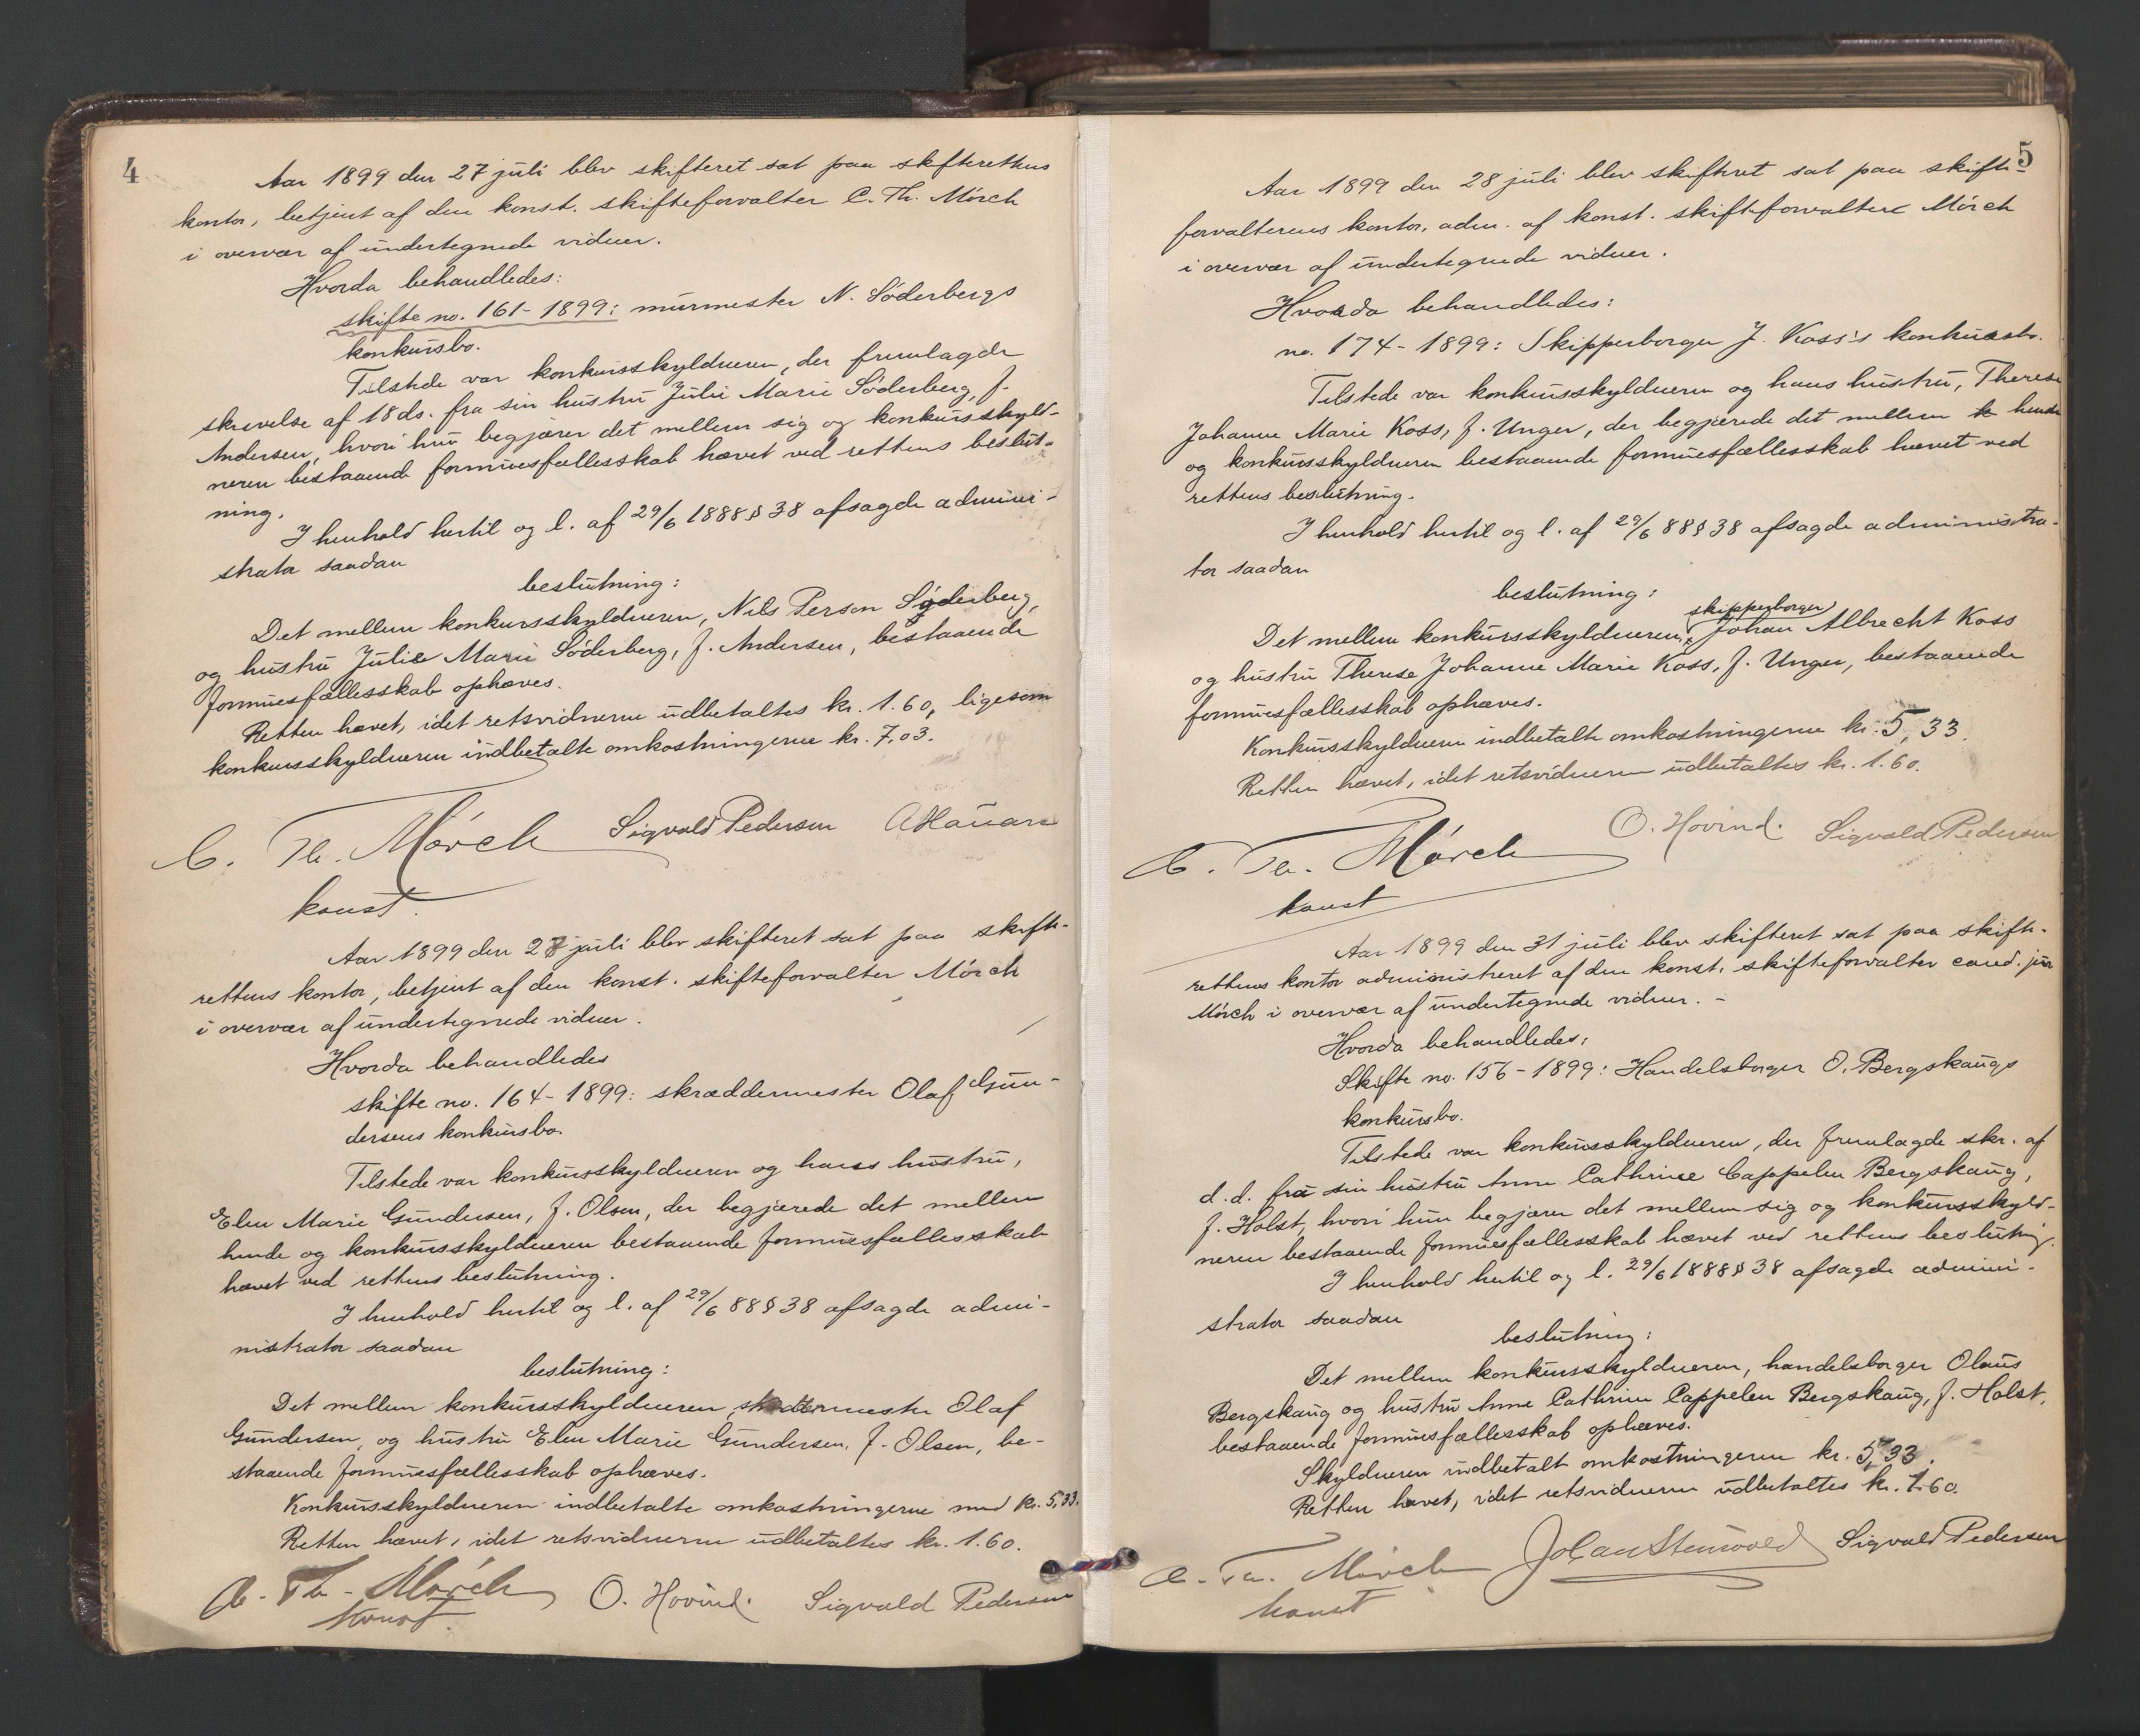 4
Aar 1899 den 27 juli blev skifteret sat paa skifterettens
kontor, betjent af den konst. skifteforvalter C. Th. Mörch
i overvær af undertegnede vidner.
Hvorda behandledes:
skifte no. 161 - 1899: murmester N. Söderbergs
konkursbo.
Tilstede var konkursskyldneren, der fremlagde
skrivelse af 18 ds. fra sin hustru Julie Marie Söderberg, f.
Andersen, hvori hun begjærer det mellem sig og konkursskyld-
neren bestaaende formuesfællesskab hævet ved rettens beslut-
ning.
I henhold hertil og l. af 29/6 1888 § 38 afsagde admini-
strator saadan
beslutning:
Det mellem konkursskyldneren, Nils Person Söderberg,
og hustru Julie Marie Söderberg, f. Andersen, bestaaende
formuesfællesskab ophæves.
Retten hævet, idet retsvidnerne udbetaltes kr. 1.60, ligesom
konkursskyldneren indbetalte omkostningerne kr. 7,03.
C. Th. Mörch Sigvald Pedersen
konst.
Aar 1899 den 28 juli blev skifteret sat paa skifte-
rettens kontor, betjent af den konst. skifteforvalter Mörch
i overvær af undertegnede vidner.
Hvorda behandledes
skifte no. 164 - 1899: skræddermester Olaf Gun-
dersens konkursbo.
Tilstede var konkursskyldneren og hans hustru,
Elen Marie Gundersen, f. Olsen, der begjærede det mellem
hende og konkursskyldneren bestaaende formuesfællesskab
hævet ved rettens beslutning.
I henhold hertil og l. af 29/6 88 § 38 afsagde admi-
nistrator saadan
beslutning:
Det mellem konkursskyldneren, skræddermester Olaf
Gundersen, og hustru Elen Marie Gundersen, f. Olsen, be-
staaende formuesfællesskab ophæves.
Konkursskyldneren indbetalte omkostningerne med kr. 5,33.
Retten hævet, idet retsvidnerne udbetaltes kr. 1.60.
C. Th. Mörch O. Hovind. Sigvald Pedersen
konst.
5
Aar 1899 den 28 juli blev skifteret sat paa skifte-
forvalterens kontor, adm. af konst. skifteforvalter Mörch
i overvær af undertegnede vidner.
Hvorda behandledes:
no. 174 - 1899: Skipperborger J. Koss's konkursbo.
Tilstede var konkursskyldneren og hans hustru, Therese
Johanne Marie Koss, f. Unger, der begjærede det mellem hende
og konkursskyldneren bestaaende formuesfællesskab hævet ved
rettens beslutning.
I henhold hertil og l. af 29/6 88 § 38 afsagde administra-
tor saadan
beslutning:
Det mellem konkursskyldneren, skipperborger Johan Albrecht Koss
og hustru Therese Johanne Marie Koss, f. Unger, bestaaende
formuesfællesskab ophæves.
Konkursskyldneren indbetalte omkostningerne kr. 5,33.
Retten hævet, idet retsvidnerne udbetaltes kr. 1.60.
C. Th. Mörch O. Hovind. Sigvald Pedersen
konst
Aar 1899 den 31 juli blev skifteret sat paa skifte-
rettens kontor administreret af den konst. skifteforvalter cand. jur
Mörch i overvær af undertegnede vidner. -
Hvorda behandledes:
Skifte no. 156 - 1899: Handelsborger O. Bergskaugs
konkursbo.
Tilstede var konkursskyldneren, der fremlagde skr. af
d.d. fra sin hustru Anne Cathrine Cappelen Bergskaug,
f. Holst, hvori hun begjærer det mellem sig og konkursskyld-
neren bestaaende formuesfællesskab hævet ved rettens beslutning.
I henhold hertil og l. 29/6 1888 § 38 afsagde admini-
strator saadan
beslutning:
Det mellem konkursskyldneren, handelsborger Olaus
Bergskaug og hustru Anne Cathrine Cappelen Bergskaug, f. Holst,
bestaaende formuesfællesskab ophæves.
Skyldneren indbetalt omkostningerne kr. 5,33.
Retten hævet, idet retsvidnerne udbetaltes kr. 1.60.
C. Th. Mörch Johan Stenvold Sigvald Pedersen
konst